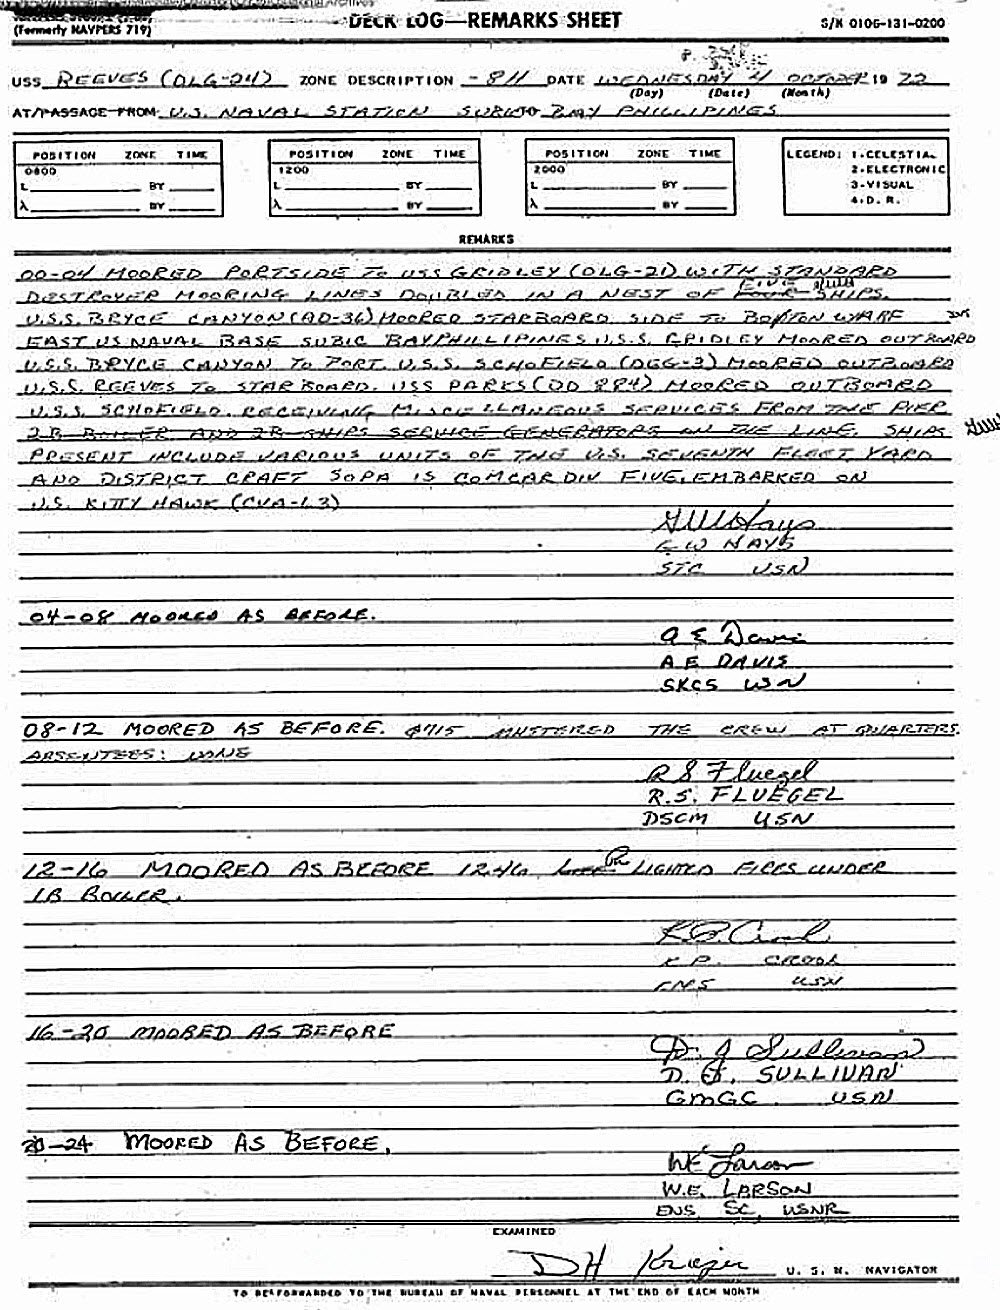 (Formerly NAVPERS 719)
DECK LOG—REMARKS SHEET
S/N 0106-131-0200
USS REEVES (DLG-24) ZONE DESCRIPTION -8H DATE WEDNESDAY 4 OCTOBER 19 72
(Day) (Date) (Month)
AT/PASSAGE FROM U.S. NAVAL STATION SUBIC TO BAY PHILLIPINES
POSITION ZONE TIME
0800
L BY
λ BY
POSITION ZONE TIME
1200
L BY
λ BY
POSITION ZONE TIME
2000
L BY
λ BY
LEGEND: 1-CELESTIAL
2-ELECTRONIC
3-VISUAL
4-D. R.
REMARKS
00-04 MOORED PORTSIDE TO USS GRIDLEY (DLG-21) WITH STANDARD
FIVE
DESTROYER MOORING LINES DOUBLED IN A NEST OF FOUR SHIPS.
U.S.S. BRYCE CANYON (AD-36) MOORED STARBOARD SIDE TO BOTON WARF
EAST US NAVAL BASE SUBIC BAY PHILLIPINES U.S.S. GRIDLEY MOORED OUTBOARD
U.S.S. BRYCE CANYON TO PORT. U.S.S. SCHOFIELD (DEG-3) MOORED OUTBOARD
U.S.S. REEVES TO STARBOARD. USS PARKS (DD 884) MOORED OUTBOARD
U.S.S. SCHOFIELD. RECEIVING MISCELLANEOUS SERVICES FROM THE PIER
2B BOILER AND 2B SHIPS SERVICE GENERATORS ON THE LINE. SHIPS
PRESENT INCLUDE VARIOUS UNITS OF THE U.S. SEVENTH FLEET YARD
AND DISTRICT CRAFT SOPA IS COMCARDIV FIVE, EMBARKED ON
U.S. KITTY HAWK (CVA-63)
GW Hays
G W HAYS
STC USN
04-08 MOORED AS BEFORE.
A E Davis
A E DAVIS
SKCS USN
08-12 MOORED AS BEFORE. 0715 MUSTERED THE CREW AT QUARTERS.
ABSENTEES: NONE
R S Fluegel
R.S. FLUEGEL
DSCM USN
12-16 MOORED AS BEFORE 1246 LIGHTED FIRES UNDER
1B BOILER.
K P. CROOK
ENS USN
16-20 MOORED AS BEFORE
D. J Sullivan
D. J. SULLIVAN
GMGC USN
20-24 MOORED AS BEFORE.
WE Larson
W.E. LARSON
ENS, SC, USNR
EXAMINED
DH
U. S. N. NAVIGATOR
TO BE FORWARDED TO THE BUREAU OF NAVAL PERSONNEL AT THE END OF EACH MONTH